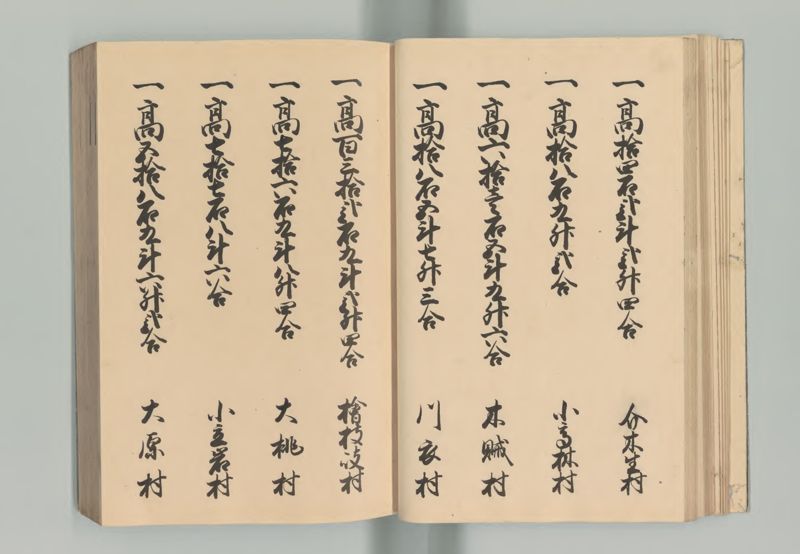 一高拾四石弐斗弐升四合 介木生村
一高拾八石九升弐合 小高林村
一高六拾壱石五斗九升六合 木賊村
一高拾八石五斗七升三合 川衣村
一高百三拾弐石九斗弐升四合 檜枝岐村
一高七拾六石九斗八升四合 大桃村
一高七拾七石八斗六合 小立岩村
一高五拾八石九斗六升弐合 大原村